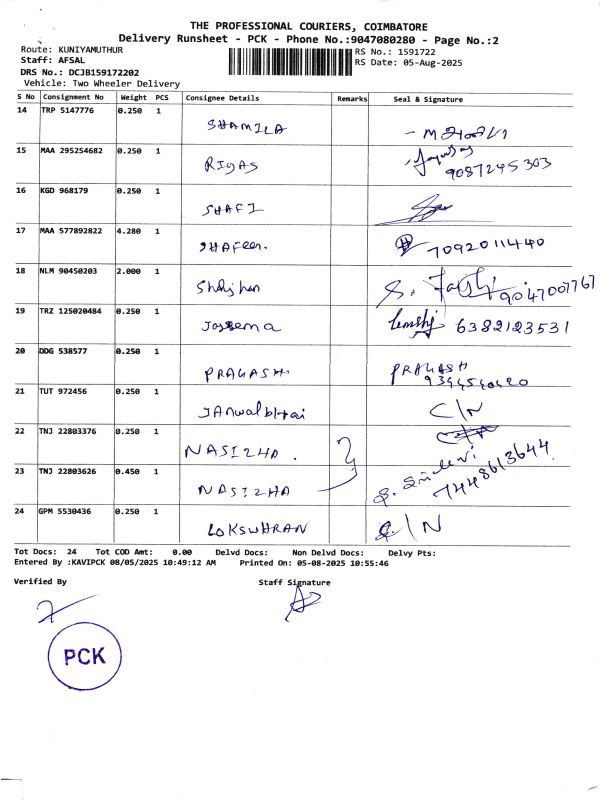 THE PROFESSIONAL COURIERS, COIMBATORE
Delivery Runsheet - PCK - Phone No.:9047080280 - Page No.:2
Route: KUNIYAMUTHUR
RS No.: 1591722
Staff: AFSAL
RS Date: 05-Aug-2025
DRS No.: DCJB159172202
Vehicle: Two Wheeler Delivery
S No Consignment No Weight PCS Consignee Details Remarks Seal & Signature
14 TRP 5147776 0.250 1 SHAMILA
15 MAA 295254682 0.250 1 RIYAS 9087245303
16 KGD 968179 0.250 1 SHAFI
17 MAA 577892822 4.280 1 SHAFEER. 7092011440
18 NLM 90450203 2.000 1 9047007767
19 TRZ 125020484 0.250 1 6382123531
20 DDG 538577 0.250 1 PRAKASH. PRAKASH
21 TUT 972456 0.250 1 C/N
22 TNJ 22803376 0.250 1 NASIZHA.
23 TNJ 22803626 0.450 1 NASIZHA 7448613644
24 GPM 5530436 0.250 1 LOKSWHRAN C/N
Tot Docs: 24 Tot COD Amt: 0.00 Delvd Docs: Non Delvd Docs: Delvy Pts:
Entered By :KAVIPCK 08/05/2025 10:49:12 AM Printed On: 05-08-2025 10:55:46
Verified By Staff Signature
PCK